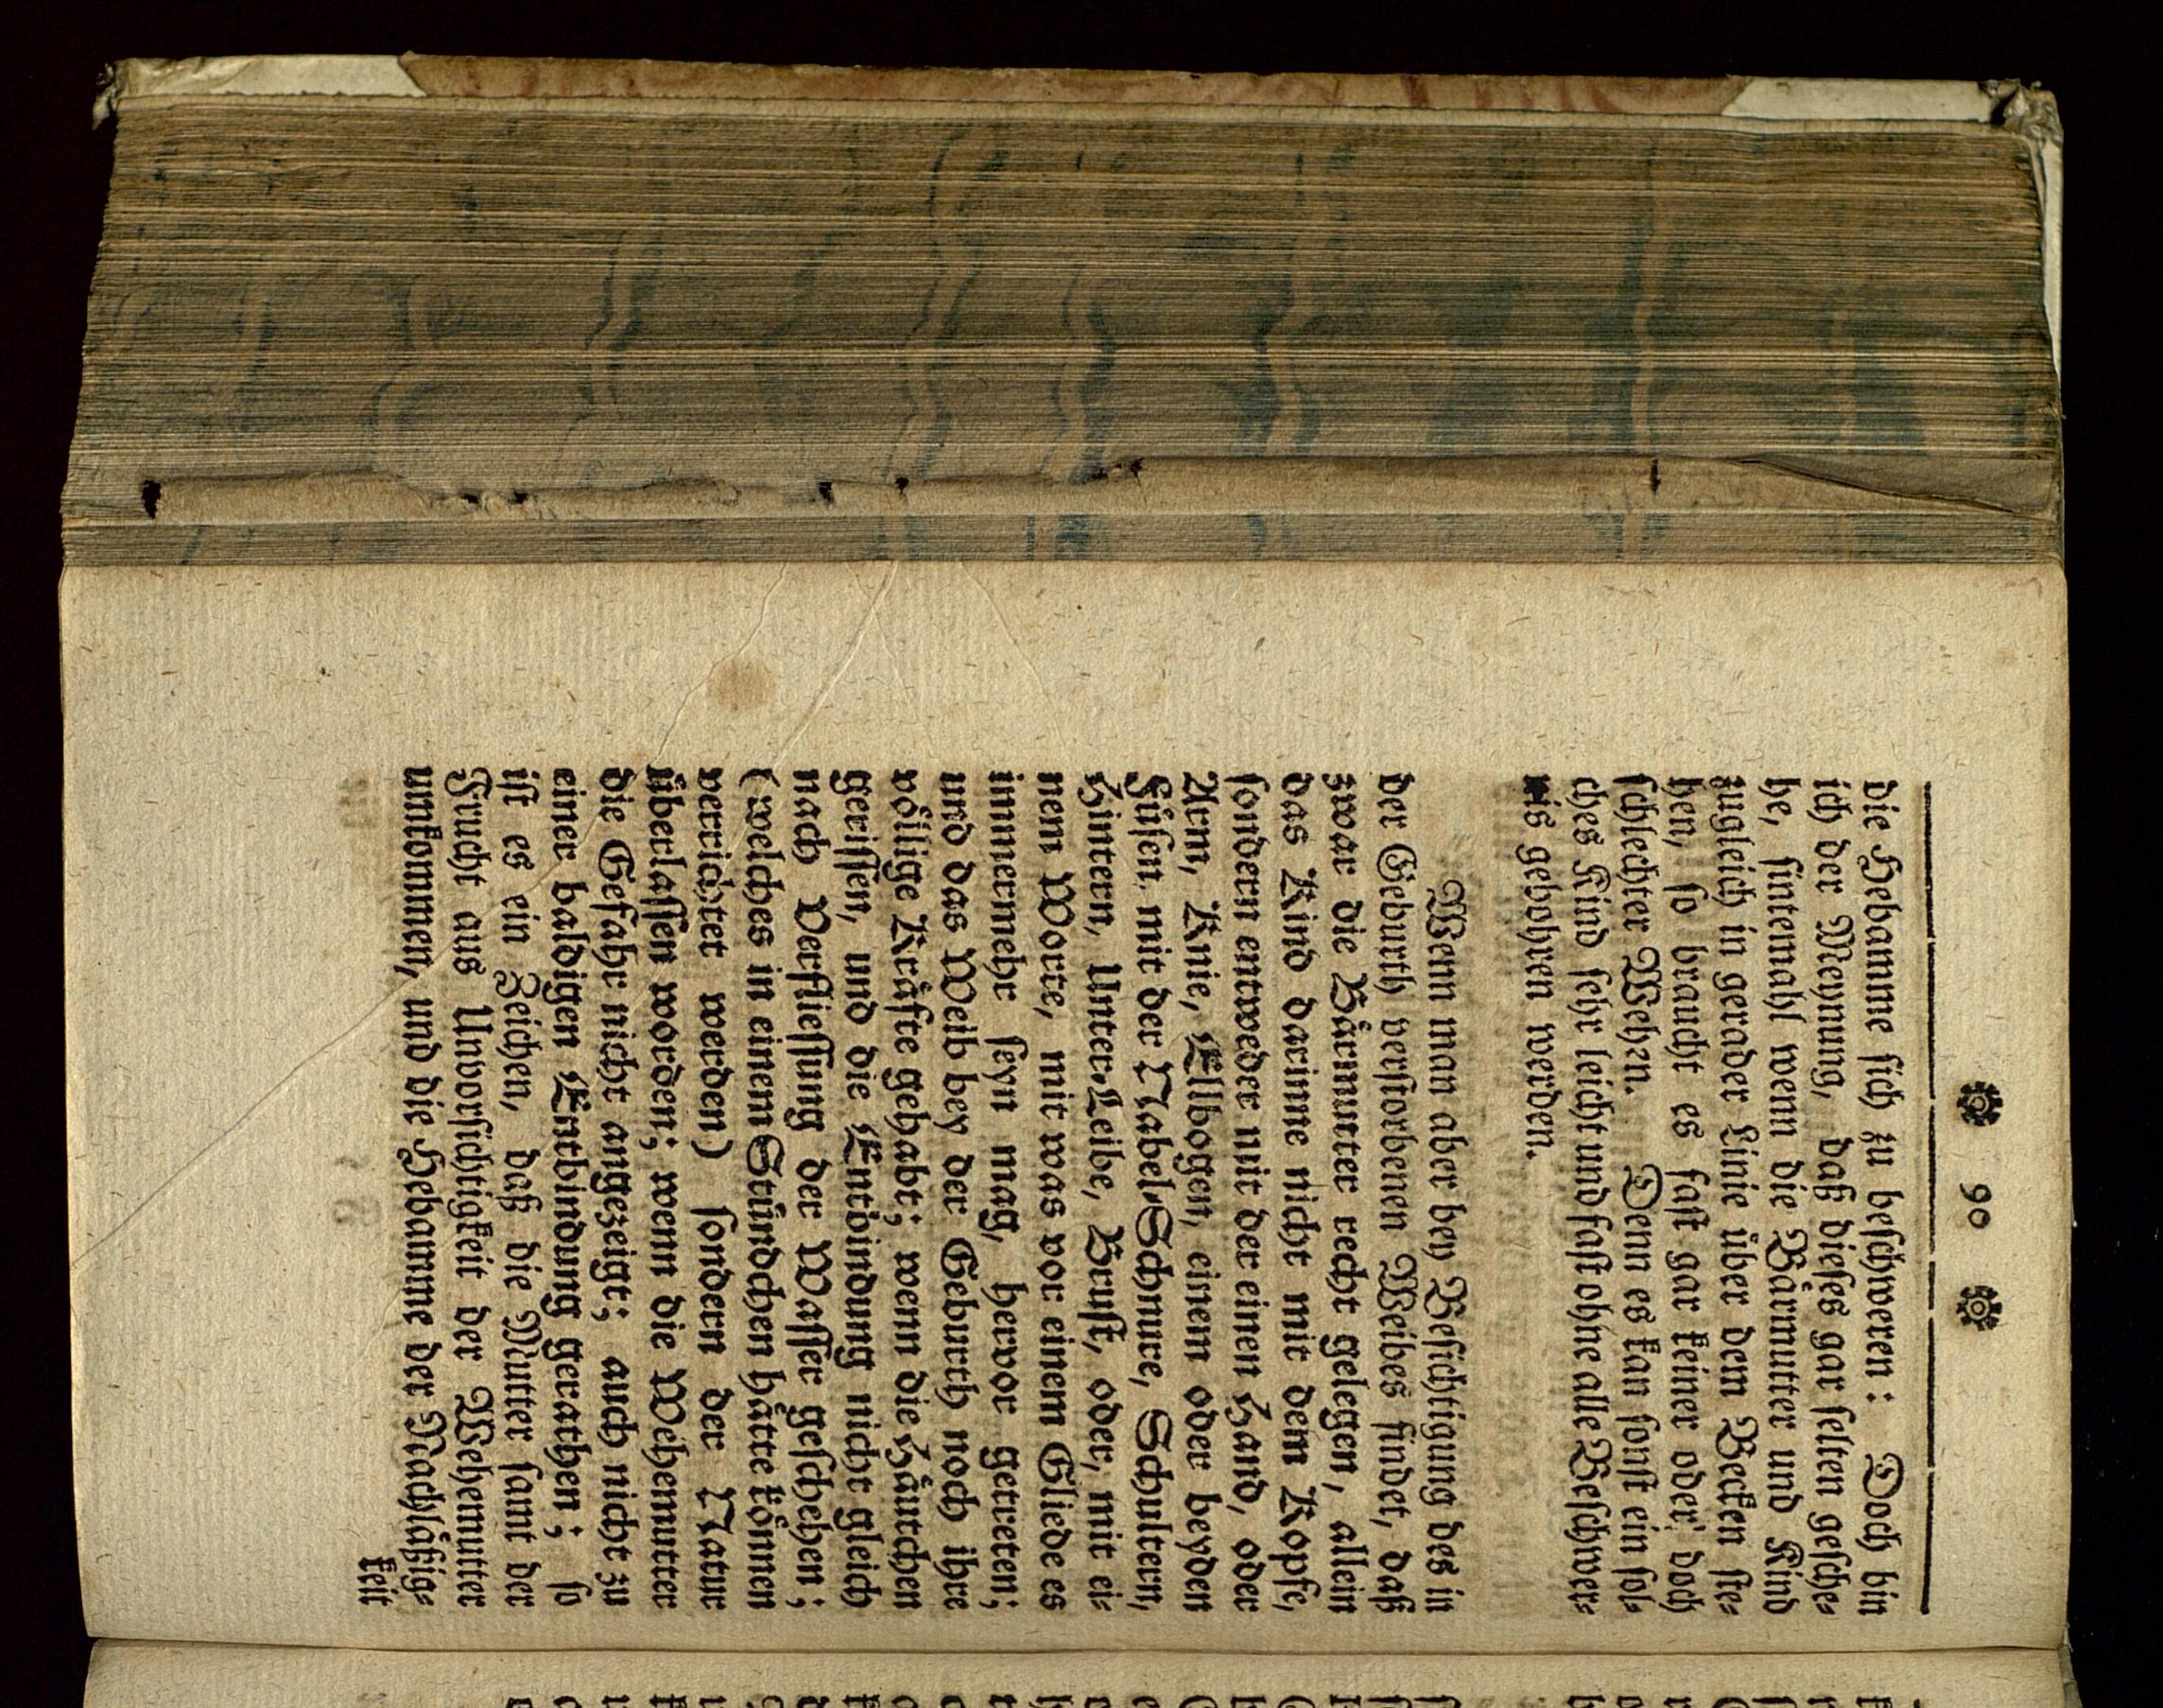 90
die Hebamme sich zu beschweren: Doch bin
ich der Meynung, daß dieses gar selten gesche-
he, sintemahl wenn die Bärmutter und Kind
zugleich in gerader Linie über dem Becken ste-
hen, so braucht es fast gar keiner oder doch
schlechter Wehen. Denn es kan sonst ein sol-
ches Kind sehr leicht und fast ohne alle Beschwer-
nis gebohren werden.
Wenn man aber bey Besichtigung des in
der Geburth verstorbenen Weibes findet, daß
zwar die Bärmutter recht gelegen, allein
das Kind darinne nicht mit dem Kopfe,
sondern entweder mit der einen Hand, oder
Arm, Knie, Ellbogen, einem oder beyden
Füsen mit der Nabel-Schnure, Schultern,
Hintern, Unter-Leibe, Brust, oder, mit ei-
nem Worte, mit was vor einem Gliede es
immermehr seyn mag, hervor getreten;
und das Weib bey der Geburth noch ihre
völlige Kräfte gehabt; wenn die Häutchen
gerissen, und die Entbindung nicht gleich
nach Verfliessung der Wasser geschehen;
(welches in einem Stündchen hätte können
verrichtet werden) sondern der Natur
überlassen worden; wenn die Wehemutter
die Gefahr nicht angezeigt; auch nicht zu
einer baldigen Entbindung gerathen; so
ist es ein Zeichen, daß die Mutter samt der
Frucht aus Unvorsichtigkeit der Wehemutter
umkommen, und die Hebamme der Nachläßig-
keit